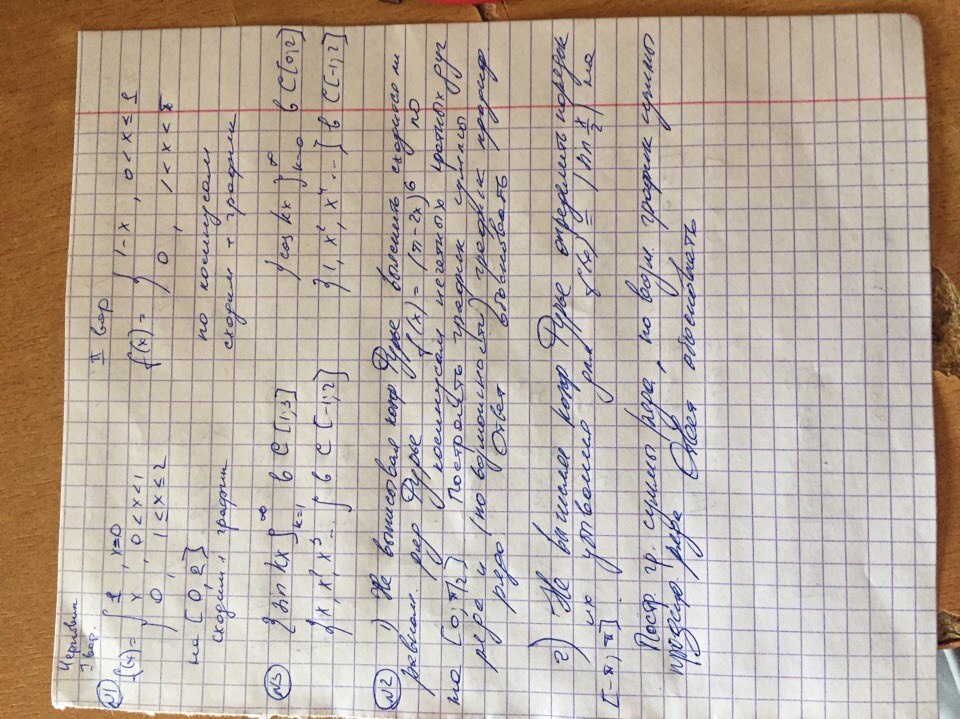 Черновик
I вар.
II вар
№1 f(x) = { 1, x=0
x, 0<x<1
0, 1≤x≤2
на [0, 2]
сходим. + график
f(x) = { 1-x, 0<x≤1
0, 1<x<π
по косинусам
сходим + график
№3 {sin kx}∞ k=1 в C[1;3]
{cos kx}∞ k=0 в C[0;2]
{x, x², x³...} в C[-1;2]
{1, x², x⁴...} в C[-1;2]
№2 1) Не выписывая коэф Фурье выяснить сходимость ли
ряд Фурье f(x) = (π-2x)⁶ по
косинусам нечетных кратных дуг
на [0; π/2] Построить график суммы
ряда и (по возможности) график
ряда. Ответ обосновать
2) Не вычисляя коэф Фурье определить порядок
их убывания для f(x) = |sin x/2| на
[-π; π]
Постр. гр. суммы ряда, по возм. график суммы
ряда Ответ обосновать